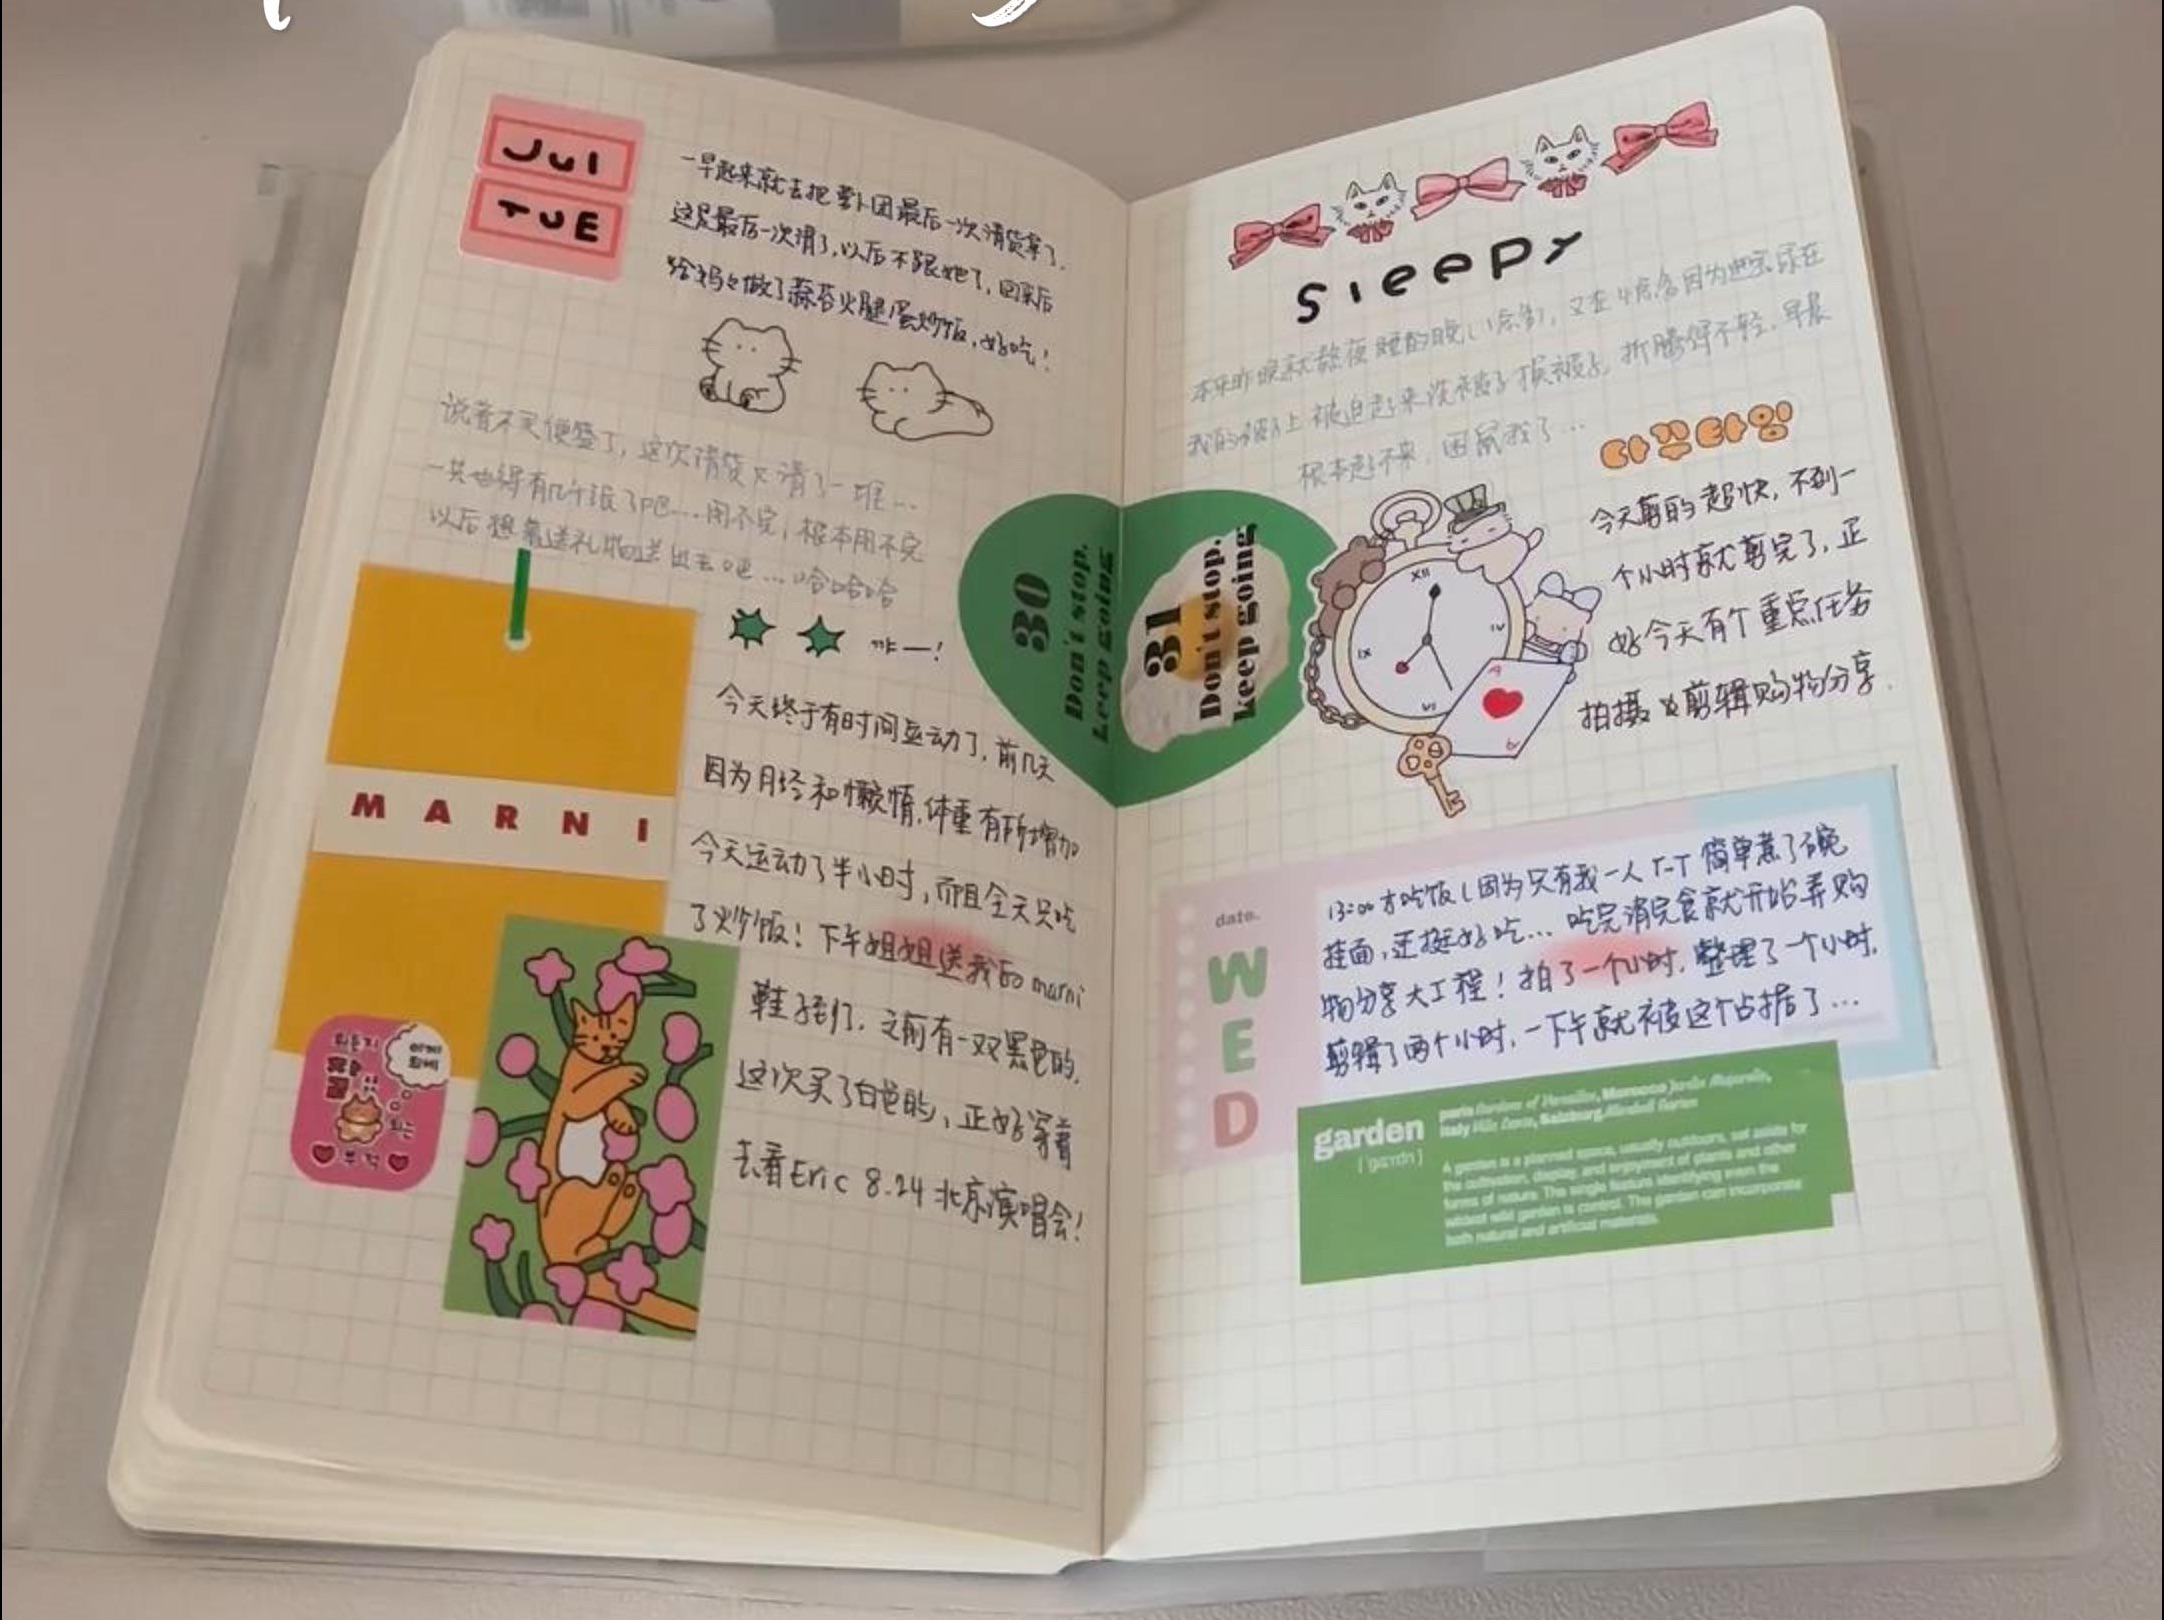 Jul
TUE
一早起来就去把萝卜团最后一次清货拿了.
这是最后一次清了,以后不跟她了,回来后
给妈々做了蒜苔火腿蛋炒饭,好吃!
说着不买便签了,这次清货又清了一堆...
一共也得有几千张了吧...用不完,根本用不完
以后想靠送礼物送出去吧...哈哈哈
咋一!
MARNI
今天终于有时间运动了,前几天
因为月经和懒惰,体重有所增加
今天运动了半小时,而且全天只吃
了炒饭!下午姐姐送我的marni
鞋子到了,之前有一双黑色的,
这次买了白色的,正好穿着
去看Eric 8.24北京演唱会!
이게
되네
되는
부적
30
Don't stop.
keep going
31
Don't stop.
keep going
sleepy
本来昨晚就熬夜睡的晚(1点多),又在4点多因为 尿在
我的被子上被迫起来洗被子换被子,折腾得不轻,早晨
根本起不来,困 我了...
다꾸타임
今天剪的超快,不到一
个小时就剪完了,正
好今天有个重点任务
拍摄&剪辑购物分享.
XII
IV
VI
IX
A
A
date.
WED
13:00才吃饭(因为只有我一人T-T 简单煮了碗
挂面,还挺好吃...吃完消完食就开始弄购
物分享大工程!拍了一个小时,整理了一个小时,
剪辑了两个小时,一下午就被这个占据了...
garden
['gɑːrdn]
paris Gardens of Versailles, Morocco Jardin Majorelle,
Italy Villa Deste, Salzburg, Mirabell Garten
A garden is a planned space, usually outdoors, set aside for
the cultivation, display, and enjoyment of plants and other
forms of nature. The single feature identifying even the
wildest wild garden is control. The garden can incorporate
both natural and artificial materials.